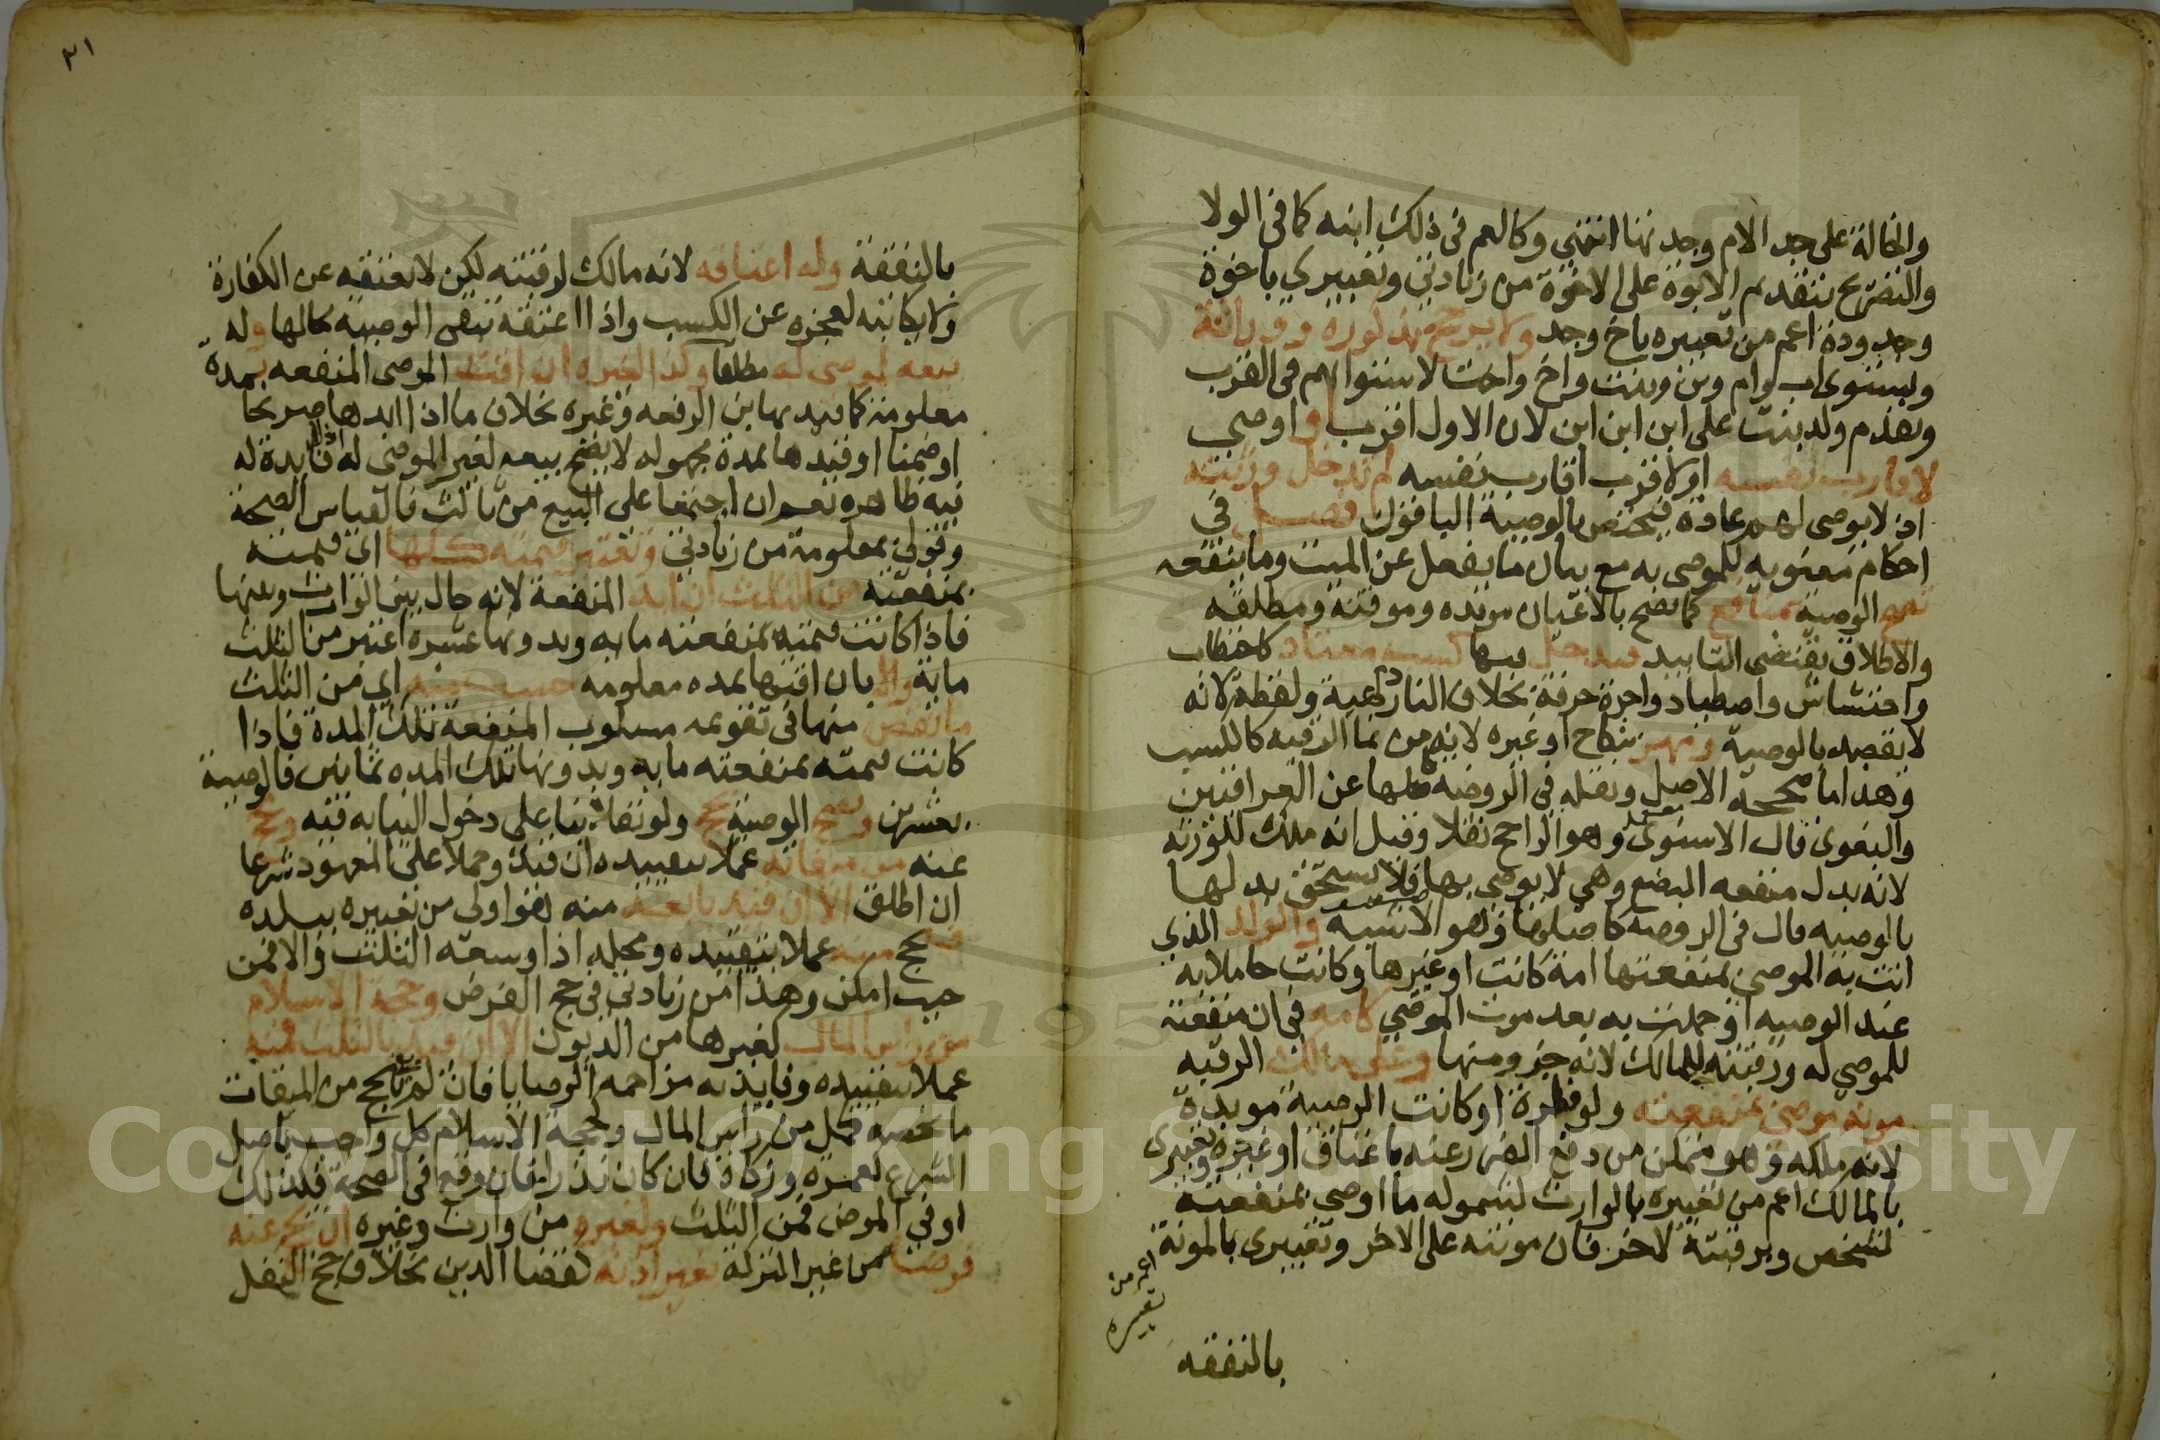 والخالة على جد الام وجدتها انتهى وكالعم في ذلك ابنه كما في الولا
والتصريح بتقديم الابوة على الاخوة من زيادتي وتعبيري باخوة
وجدودة اعم من تعبيره باخ وجد ولا يرجح بذكورة ووراثة
ويستوى اب وام وبن وبنت واخ واخت لاستوائهم في القرب
ويقدم ولد بنت على ابن ابن ابن لان الاول اقرب واوصى
لاقارب نفسه او لاقرب اقارب نفسه لم تدخل ورثته
اذ لا يوصى لهم عادة فيختص بالوصية الباقون فصل في
احكام معنوية للموصى به مع بيان ما يفعل عن الميت وما ينفعه
تصح الوصية بمنافع كما تصح بالاعيان موبده وموقتة ومطلقة
والاطلاق يقتضى التابيد فيدخل فيها كسب معتاد كاحتطاب
واحتشاش واصطياد واجرة حرفة بخلاف النادر كهبة ولقطة لانه
لا يقصد بالوصية ومهر بنكاح او غيره لانه من نما الرقبة كالكسب
وهذا ما صححه الاصل ونقله في الروضة كاصلها عن العراقيين
والبغوى قال الاسنوى وهو الراجح نقلا وقيل انه ملك للورثة
لانه بدل منفعه البضع وهي لا يوصى بها فلا يستحق بدلها
بالوصيه قال في الروضة كاصلها وهو الاشبه والولد الذي
اتت به الموصى بمنفعتها امة كانت او غيرها وكانت حاملا به
عند الوصيه او حملت به بعد موت الموصي كامه في ان منفعته
للموصي له ورقبته للمالك لانه جزو منها وعلى مالك الرقبه
مونة موصى بمنفعته ولو فطرة او كانت الوصية موبدة
لانه ملكه وهو متمكن من دفع الضرر عنه باعتاق او غيره وتعبيرى
بالمالك اعم من تعبيره بالوارث لشموله ما اوصى بمنفعته
لشخص وبرقبته لاخر فان مونته على الاخر وتعبيرى بالمونة
اعم من
تعبيره
بالنفقه
٣١
بالنفقة وله اعتاقه لانه مالك لرقبته لكن لا يعتقه عن الكفارة
ولا يكاتبه لعجزه عن الكسب واذا اعتقه تبقى الوصيه بحالها وله
بيعه لموصى له مطلقا وكذا لغيره ان اقت الموصى المنفعه بمدة
معلومة كما قيد بها ابن الرفعه وغيره بخلاف ما اذا ابدها صريحا
او ضمنا او قيدها بمدة مجهوله لا يصح بيعه لغير الموصى له اذ لا فايدة له
فيه ظاهره نعم ان اجتمعا على البيع من ثالث فالقياس الصحة
وقولي بمعلومة من زيادتي وتعتبر قيمته كلها اي قيمته
بمنفعته من الثلث ان ابد المنفعة لانه حال بين الوارث وبينها
فاذا كانت قيمته بمنفعته مايه وبدونها عشرة اعتبر من الثلث
ماية والا بان اقتها بمده معلومه حسب منه اي من الثلث
ما نقص منها في تقويمه مسلوب المنفعة تلك المدة فاذا
كانت قيمته بمنفعته مايه وبدونها تلك المده ثمانين فالوصية
بعشرين وتصح الوصية بحج ولو نفلا بنا على دخول النيابه فيه ويحج
عنه من ميقاته عملا بتقييده ان قيد وحملا على المعهود شرعا
ان اطلق الا ان قيد بابعد منه هو اولى من تعبيره ببلده
فيحج منه عملا بتقييده ومحله اذا وسعه الثلث والا فمن
حيث امكن وهذا من زيادتي في حج الفرض وحجة الاسلام
من راس المال كغيرها من الديون الا ان قيد بالثلث فمنه
عملا بتقييده وفايدته مزاحمه الوصايا فان لم يف بالحج من الميقات
ما يخصه كمل من راس المال وكحجة الاسلام كل واجب باصل
الشرع كعمرة وزكاة فان كان نذرا فان وقع في الصحة فكذلك
او في المرض فمن الثلث ولغيره من وارث وغيره ان يحج عنه
فرضا من غير التركة بغير اذنه كقضا الدين بخلاف حج النفل